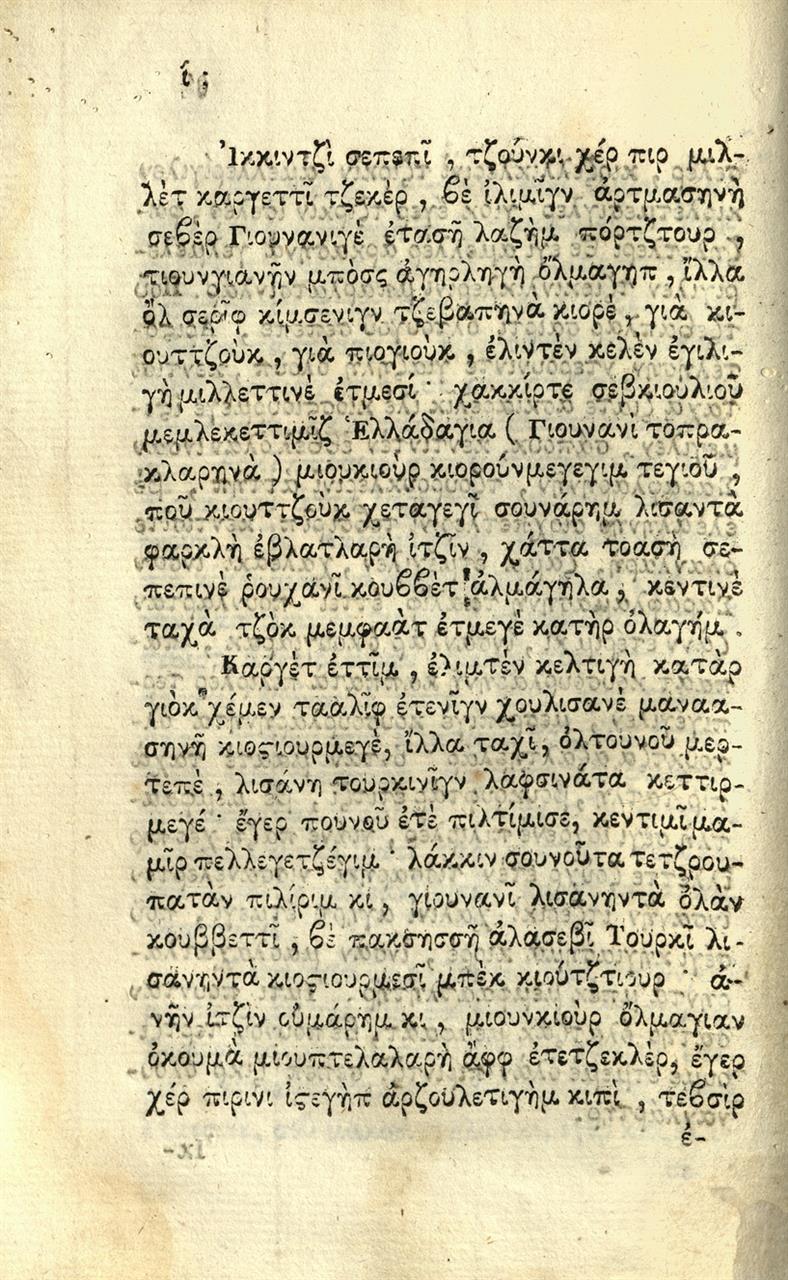 ί ;
Ἰκκιντζὶ σεπεπῒ , τζοῦνκι χέρ πιρ μιλ-
λὲτ καργεττῒ τζεκὲρ , βὲ ἰλιμῒγν ἀρτμασηνὴ
σεβὲρ Γιουνανιγὲ ἐτασῆ λαζὴμ πόρτζτουρ ,
τιουνγιανῆν μπὸσς ἀγηρληγὴ ὄλμαγηπ , ἴλλα
ὂλ σερῒφ κίμσενιγν τζεβαπηνὰ κιορὲ , γιὰ κι-
ουττζοὺκ , γιὰ πιογιοὺκ , ἐλιντὲν κελὲν ἐγιλι-
γὴ μιλλεττινὲ ἐτμεσί · χακκίρτε σεβκιουλιοῦ
μεμλεκεττιμῒζ Ἑλλάδαγια ( Γιουνανὶ τοπρα-
κλαρηνὰ ) μιουκιοὺρ κιορούνμεγεγιμ τεγιοῦ ,
ποῦ κιουττζοὺκ χεταγεγῒ σουνάρημ λισαντὰ
φαρκλὴ ἐβλατλαρὴ ἰτζῒν , χάττα τοασὴ σε-
πεπινὲ ῥουχανῒ κουββὲτ ἀλμάγηλα , κεντινὲ
ταχὰ τζὸκ μεμφαὰτ ἐτμεγὲ κατὴρ ὀλαγήμ .
Καργὲτ ἐττῒμ , ἐλιμτὲν κελτιγὴ κατὰρ
γιὸκ χέμεν τααλῒφ ἐτενῒγν χουλισανὲ μαναα-
σηνῆ κιοςιουρμεγὲ, ἴλλα ταχῒ, ὀλτουνοῦ μερ-
τεπὲ , λισάνη τουρκινῒγν λαφσινάτα κεττιρ-
μεγέ · ἔγερ πουνοῦ ἐτὲ πιλτίμισε, κεντιμῒ μα-
μῒρ πελλεγετζέγιμ · λάκκιν σουνοῦτα τετζρου-
πατὰν πιλίριμ κι , γίουνανῒ λισανηντὰ ὂλὰν
κουββεττῒ , βὲ πακσησσῆ ἀλασεβῒ Τουρκῒ λι-
σάνηντὰ κιοςιουρμεσῒ μπὲκ κιούτζτιουρ · ἀ-
νῆν ἰτζὶν οὐμάρημ κι , μιουνκιοὺρ ὄλμαγιαν
ὀκουμὰ μίουπτελαλαρὴ ἄφφ ἐτετζεκλὲρ, ἔγερ
χέρ πιρινι ἰςεγὴπ ἀρζουλετιγὴμ κιπὶ , τεβσὶρ
ἐ-